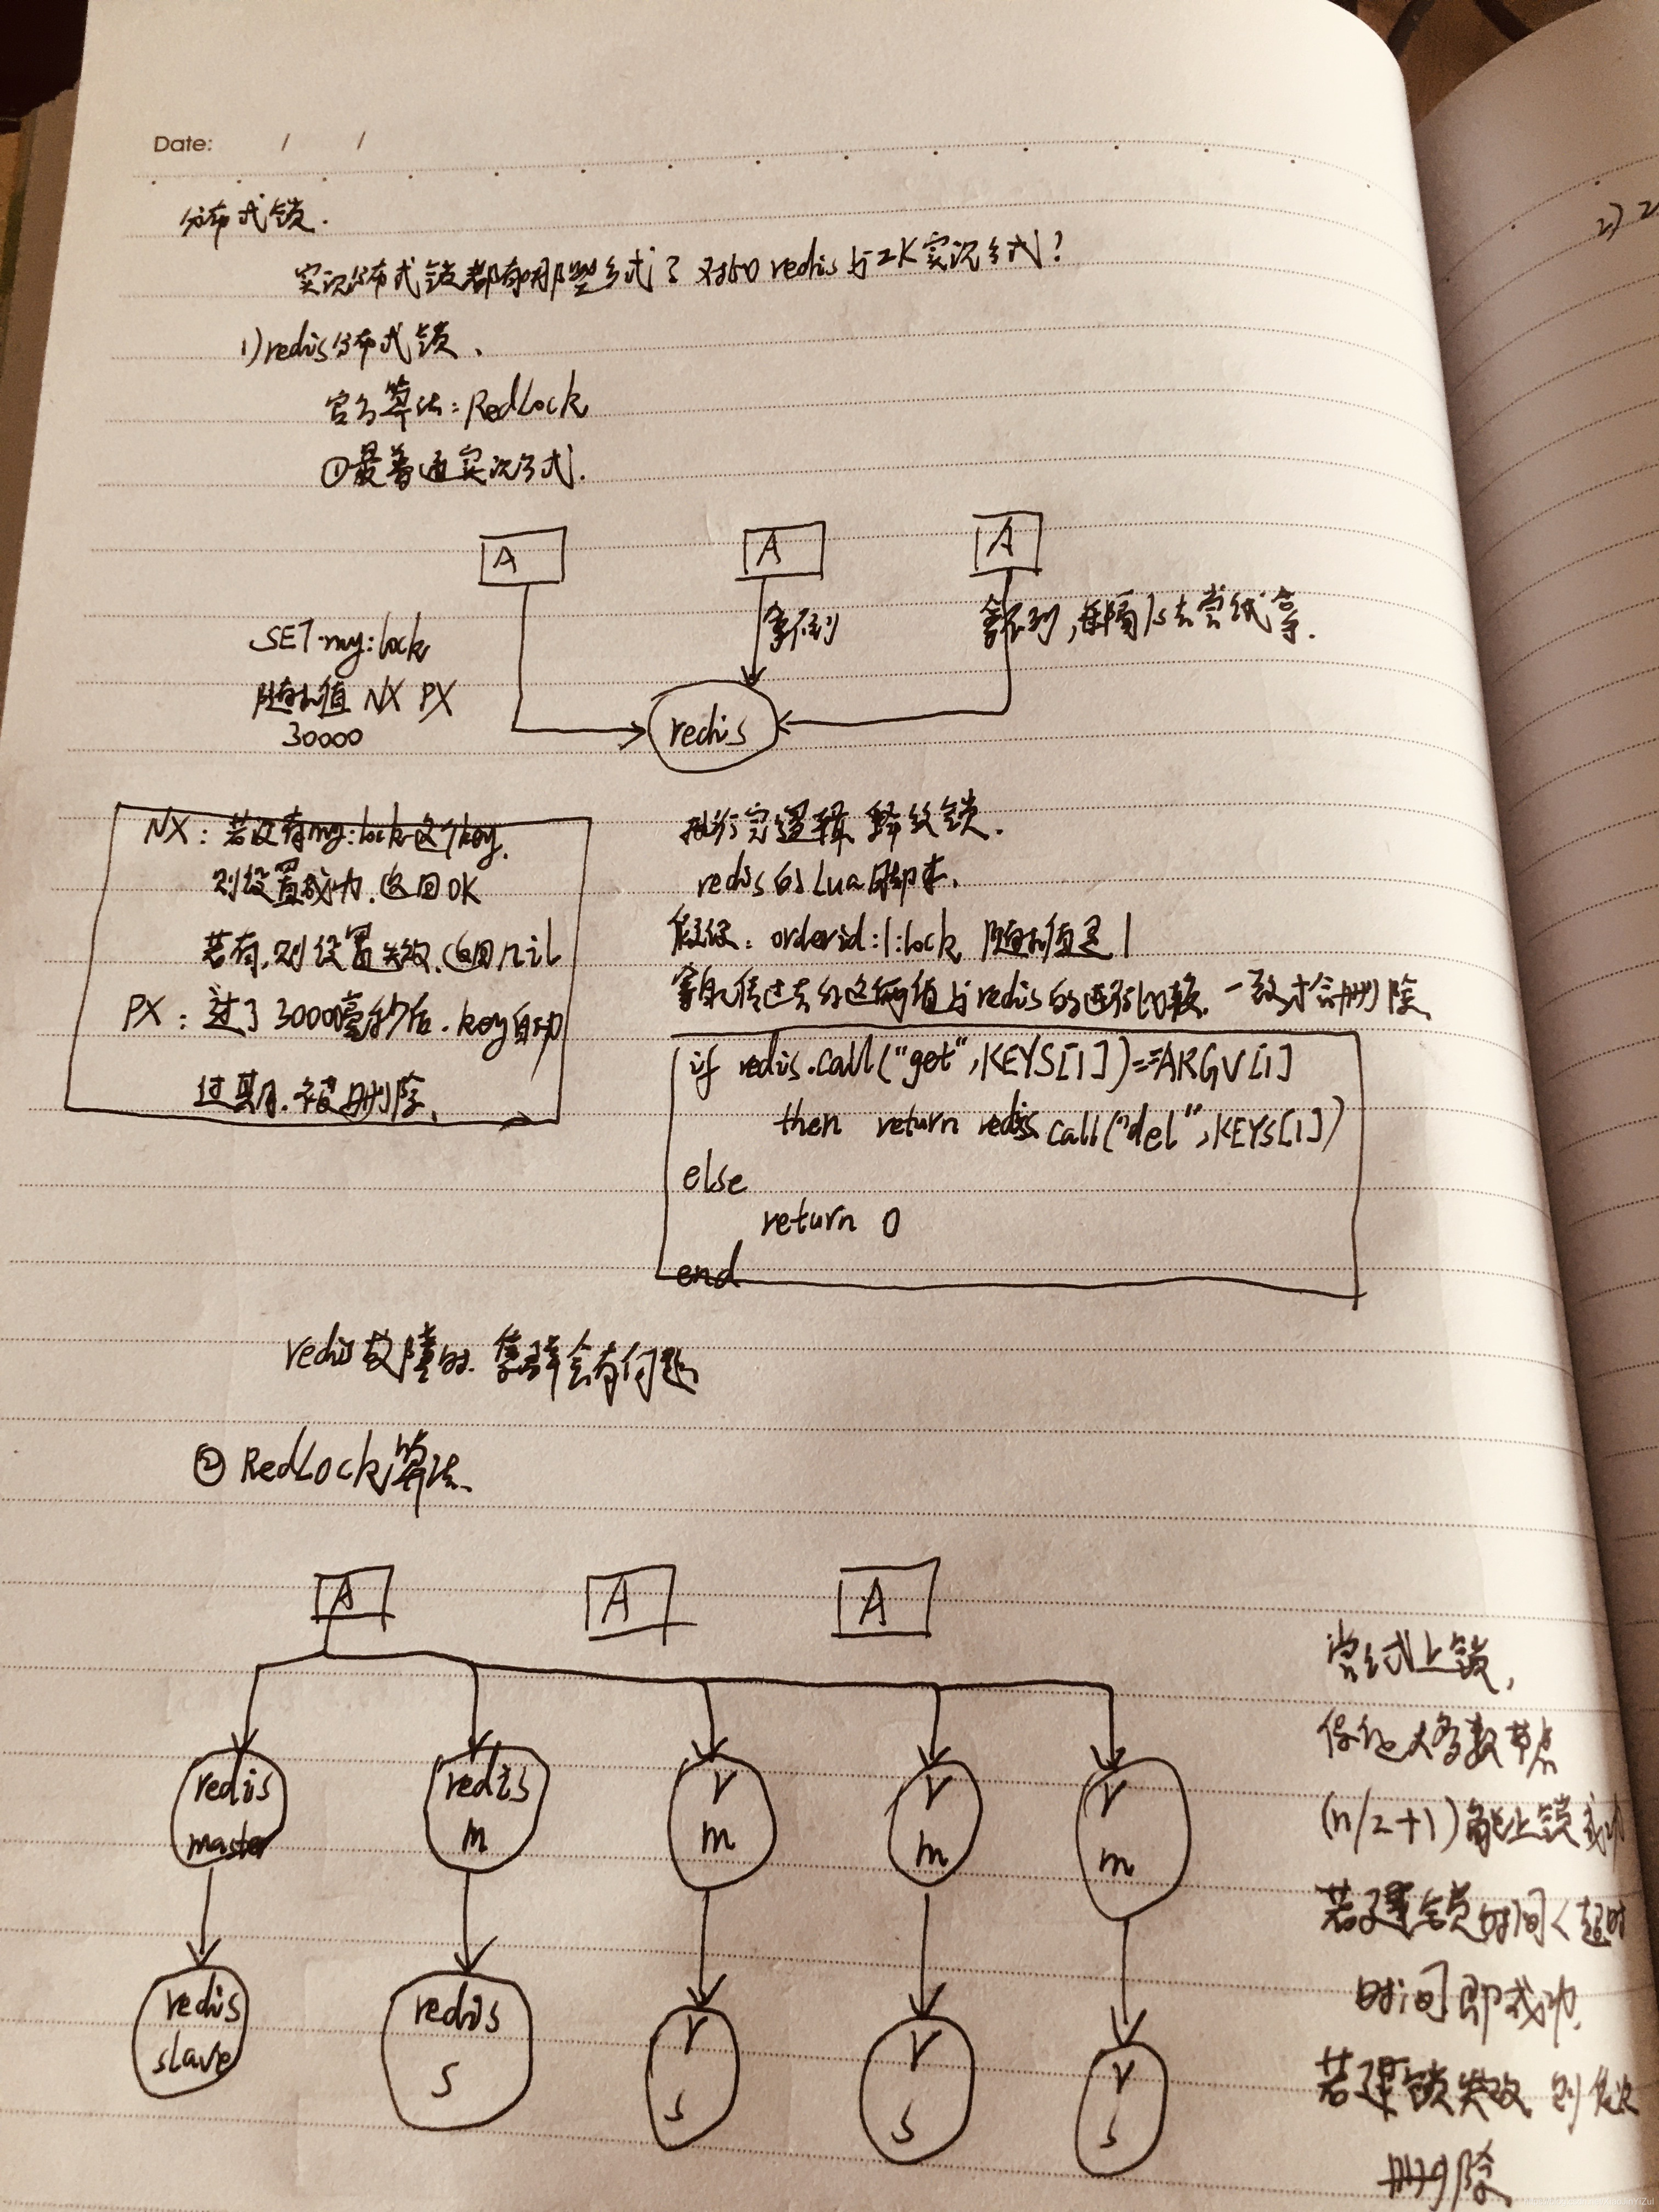 Date: / /
分布式锁.
实现分布式锁都有哪些方式？对比redis与ZK实现方式？
1)redis分布式锁、
官方算法:RedLock
①最普通实现方式.
A A A
拿不到
拿不到,每隔1s去尝试拿.
SET my:lock
随机值 NX PX
30000
redis
NX:若没有my:lock这个key.
则设置成功.返回OK
若有.则设置失败.返回nil
PX:过了30000毫秒后.key自动
过期.被删除、
执行完逻辑 释放锁.
redis的Lua脚本.
假设:orderid:1:lock 随机值是1
拿自己传过去的这个值与redis的进行比较.一致才会删除
if redis.call("get",KEYS[1])==ARGV[1]
then return redis.call("del",KEYS[1])
else
return 0
end
redis故障时.集群会有问题
②RedLock算法、
A A A
redis redis r r r
master m m m m
redis redis r r r
slave s s s s
尝试上锁,
保证大多数节点
(n/2+1)能上锁成功
若建锁时间<超时
时间即成功.
若建锁失败 则依次
删除
2) Z